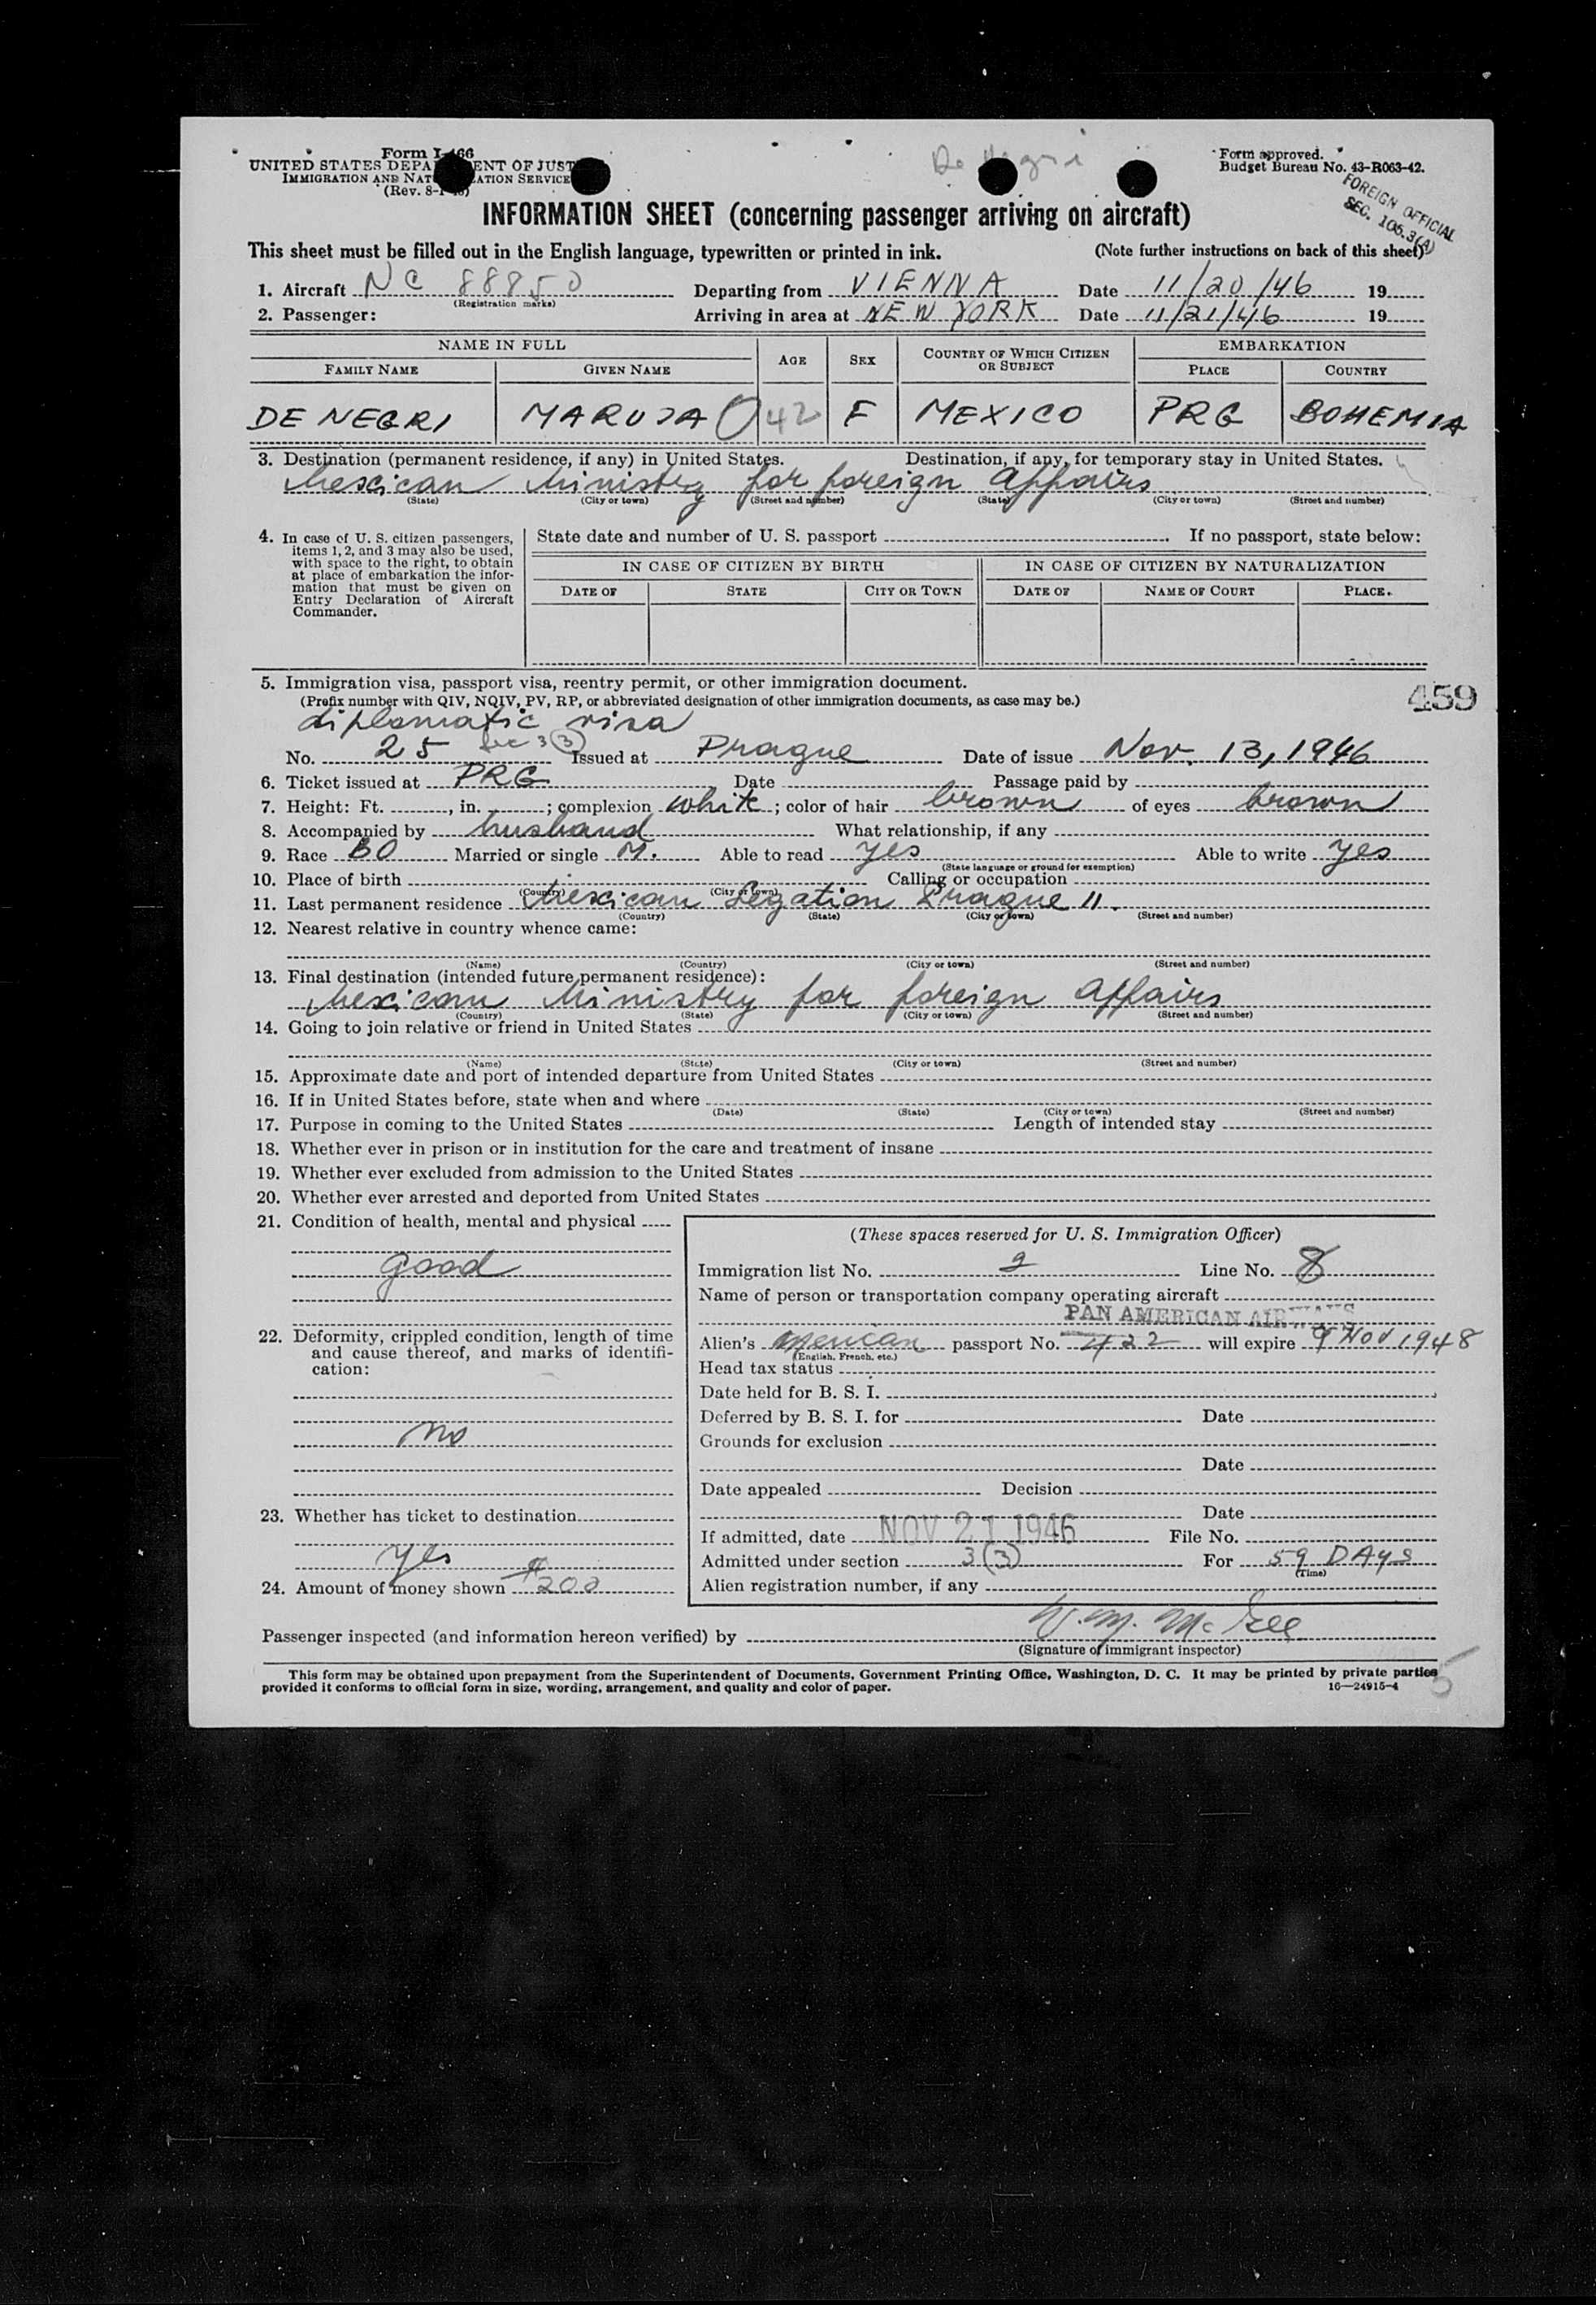 Form I-466
UNITED STATES DEPA ENT OF JUST
IMMIGRATION AND NAT ATION SERVICE
(Rev. 8-1-
Form approved.
Budget Bureau No. 43-R063-42.
FOREIGN OFFICIAL
SEC. 105.3(A)
INFORMATION SHEET (concerning passenger arriving on aircraft)
This sheet must be filled out in the English language, typewritten or printed in ink. (Note further instructions on back of this sheet)
1. Aircraft NC 88850 Departing from VIENNA Date 11/20/46 19
(Registration marks)
2. Passenger: Arriving in area at NEW YORK Date 11/21/46 19
NAME IN FULL AGE SEX COUNTRY OF WHICH CITIZEN OR SUBJECT EMBARKATION
FAMILY NAME GIVEN NAME PLACE COUNTRY
DE NEGRI MARUJA 42 F MEXICO PRG BOHEMIA
3. Destination (permanent residence, if any) in United States. Destination, if any, for temporary stay in United States.
Mexican Ministry for foreign Affairs
(State) (City or town) (Street and number) (State) (City or town) (Street and number)
4. In case of U. S. citizen passengers, items 1, 2, and 3 may also be used, with space to the right, to obtain at place of embarkation the information that must be given on Entry Declaration of Aircraft Commander.
State date and number of U. S. passport . If no passport, state below:
IN CASE OF CITIZEN BY BIRTH IN CASE OF CITIZEN BY NATURALIZATION
DATE OF STATE CITY OR TOWN DATE OF NAME OF COURT PLACE.
5. Immigration visa, passport visa, reentry permit, or other immigration document.
(Prefix number with QIV, NQIV, PV, RP, or abbreviated designation of other immigration documents, as case may be.)
459
diplomatic visa
No. 25 Sec 3(3) Issued at Prague Date of issue Nov. 13, 1946
6. Ticket issued at PRG Date Passage paid by
7. Height: Ft. , in. ; complexion white ; color of hair brown of eyes brown
8. Accompanied by husband What relationship, if any
9. Race BO Married or single M. Able to read yes Able to write yes
(State language or ground for exemption)
10. Place of birth Calling or occupation
(Country) (City or town)
11. Last permanent residence Mexican Legation Prague II.
(Country) (State) (City or town) (Street and number)
12. Nearest relative in country whence came:
(Name) (Country) (City or town) (Street and number)
13. Final destination (intended future permanent residence):
Mexican Ministry for foreign Affairs
(Country) (State) (City or town) (Street and number)
14. Going to join relative or friend in United States
(Name) (State) (City or town) (Street and number)
15. Approximate date and port of intended departure from United States
16. If in United States before, state when and where
(Date) (State) (City or town) (Street and number)
17. Purpose in coming to the United States Length of intended stay
18. Whether ever in prison or in institution for the care and treatment of insane
19. Whether ever excluded from admission to the United States
20. Whether ever arrested and deported from United States
21. Condition of health, mental and physical
good
22. Deformity, crippled condition, length of time and cause thereof, and marks of identification:
no
23. Whether has ticket to destination
yes
24. Amount of money shown $200
(These spaces reserved for U. S. Immigration Officer)
Immigration list No. 2 Line No. 8
Name of person or transportation company operating aircraft
PAN AMERICAN AIRWAYS
Alien's Mexican passport No. 422 will expire 9 Nov 1948
(English, French, etc.)
Head tax status
Date held for B. S. I.
Deferred by B. S. I. for Date
Grounds for exclusion
Date
Date appealed Decision
Date
If admitted, date NOV 21 1946 File No.
Admitted under section 3(3) For 59 DAYS
(Time)
Alien registration number, if any
Passenger inspected (and information hereon verified) by W. M. McGee
(Signature of immigrant inspector)
This form may be obtained upon prepayment from the Superintendent of Documents, Government Printing Office, Washington, D. C. It may be printed by private parties
provided it conforms to official form in size, wording, arrangement, and quality and color of paper. 16—24915-4
5